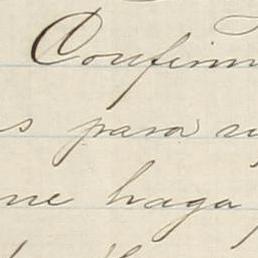 Confirm
s para
ne haga